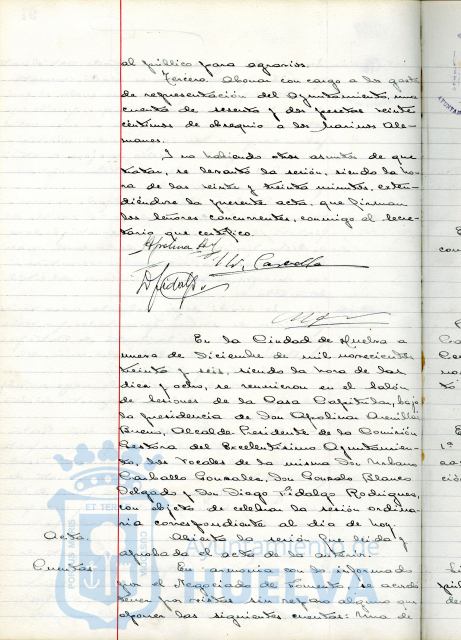 al público para agravios.
Tercero. Abonar con cargo a los gastos
de representación del Ayuntamiento, una
cuenta de sesenta y dos pesetas veinte
céntimos de obsequio a los Marinos Ale-
manes.
Y no habiendo otros asuntos de que
tratar, se levantó la sesión, siendo la ho-
ra de las veinte y treinta minutos, exten-
diéndose la presente acta, que firman
los señores concurrentes, conmigo el Secre-
tario que certifico.
D. Fidalgo
En la Ciudad de Huelva a
nueve de Diciembre de mil novecientos
treinta y seis, siendo la hora de las
diez y ocho, se reunieron en el Salón
de Sesiones de la Casa Capitular, bajo
la presidencia de Don Apolinar Arenillas
Bueno, Alcalde-Presidente de la Comisión
Gestora del Excelentísimo Ayuntamien-
to, los Vocales de la misma Don Urbano
Carballo Gonzales, Don Gonzalo Blanco
Delgado y Don Diego Fidalgo Rodríguez,
con objeto de celebrar la sesión ordina-
ria correspondiente al día de hoy.
Acta. Abierta la sesión fue leída y
aprobada el acta de la anterior.
Cuentas. En armonía con lo informado
por el Negociado de Fomento, se acuerda
tener por vistas sin reparo alguno que
oponer las siguientes cuentas: Una de
ET TERRAE
Ayuntamiento de
HUELVA